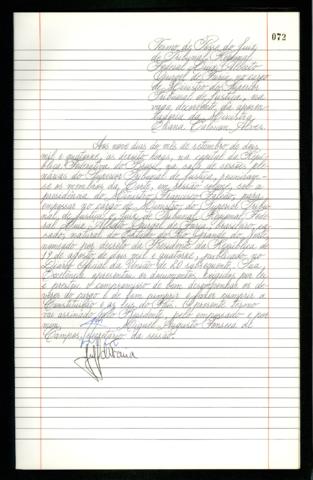 072
Termo de Posse do Juiz
de Tribunal Regional
Federal Luiz Alberto
Gurgel de Faria no cargo
de Ministro do Superior
Tribunal de Justiça, na
vaga decorrente da aposen-
tadoria da Ministra
Eliana Calmon Alves.
Aos nove dias do mês de setembro de dois
mil e quatorze, às dezoito horas, na capital da Repú-
blica Federativa do Brasil, na sala de sessões ple-
nárias do Superior Tribunal de Justiça, presentes
os membros da Corte, em sessão solene, sob a
presidência do Ministro Francisco Falcão, para
empossar no cargo de Ministro do Superior Tribu-
nal de Justiça o Juiz de Tribunal Regional Fede-
ral Luiz Alberto Gurgel de Faria, brasileiro, ca-
sado, natural do Estado do Rio Grande do Norte,
nomeado por decreto da Presidente da República de
19 de agosto de dois mil e quatorze, publicado no
Diário Oficial da União de 20 subsequente. Sua
Excelência apresentou os documentos exigidos por lei
e prestou o compromisso de bem desempenhar os de-
veres do cargo e de bem cumprir e fazer cumprir a
Constituição e as leis do País. O presente termo
vai assinado pelo Presidente, pelo empossado e por
mim, Miguel Augusto Fonseca de
Campos, secretário da sessão.